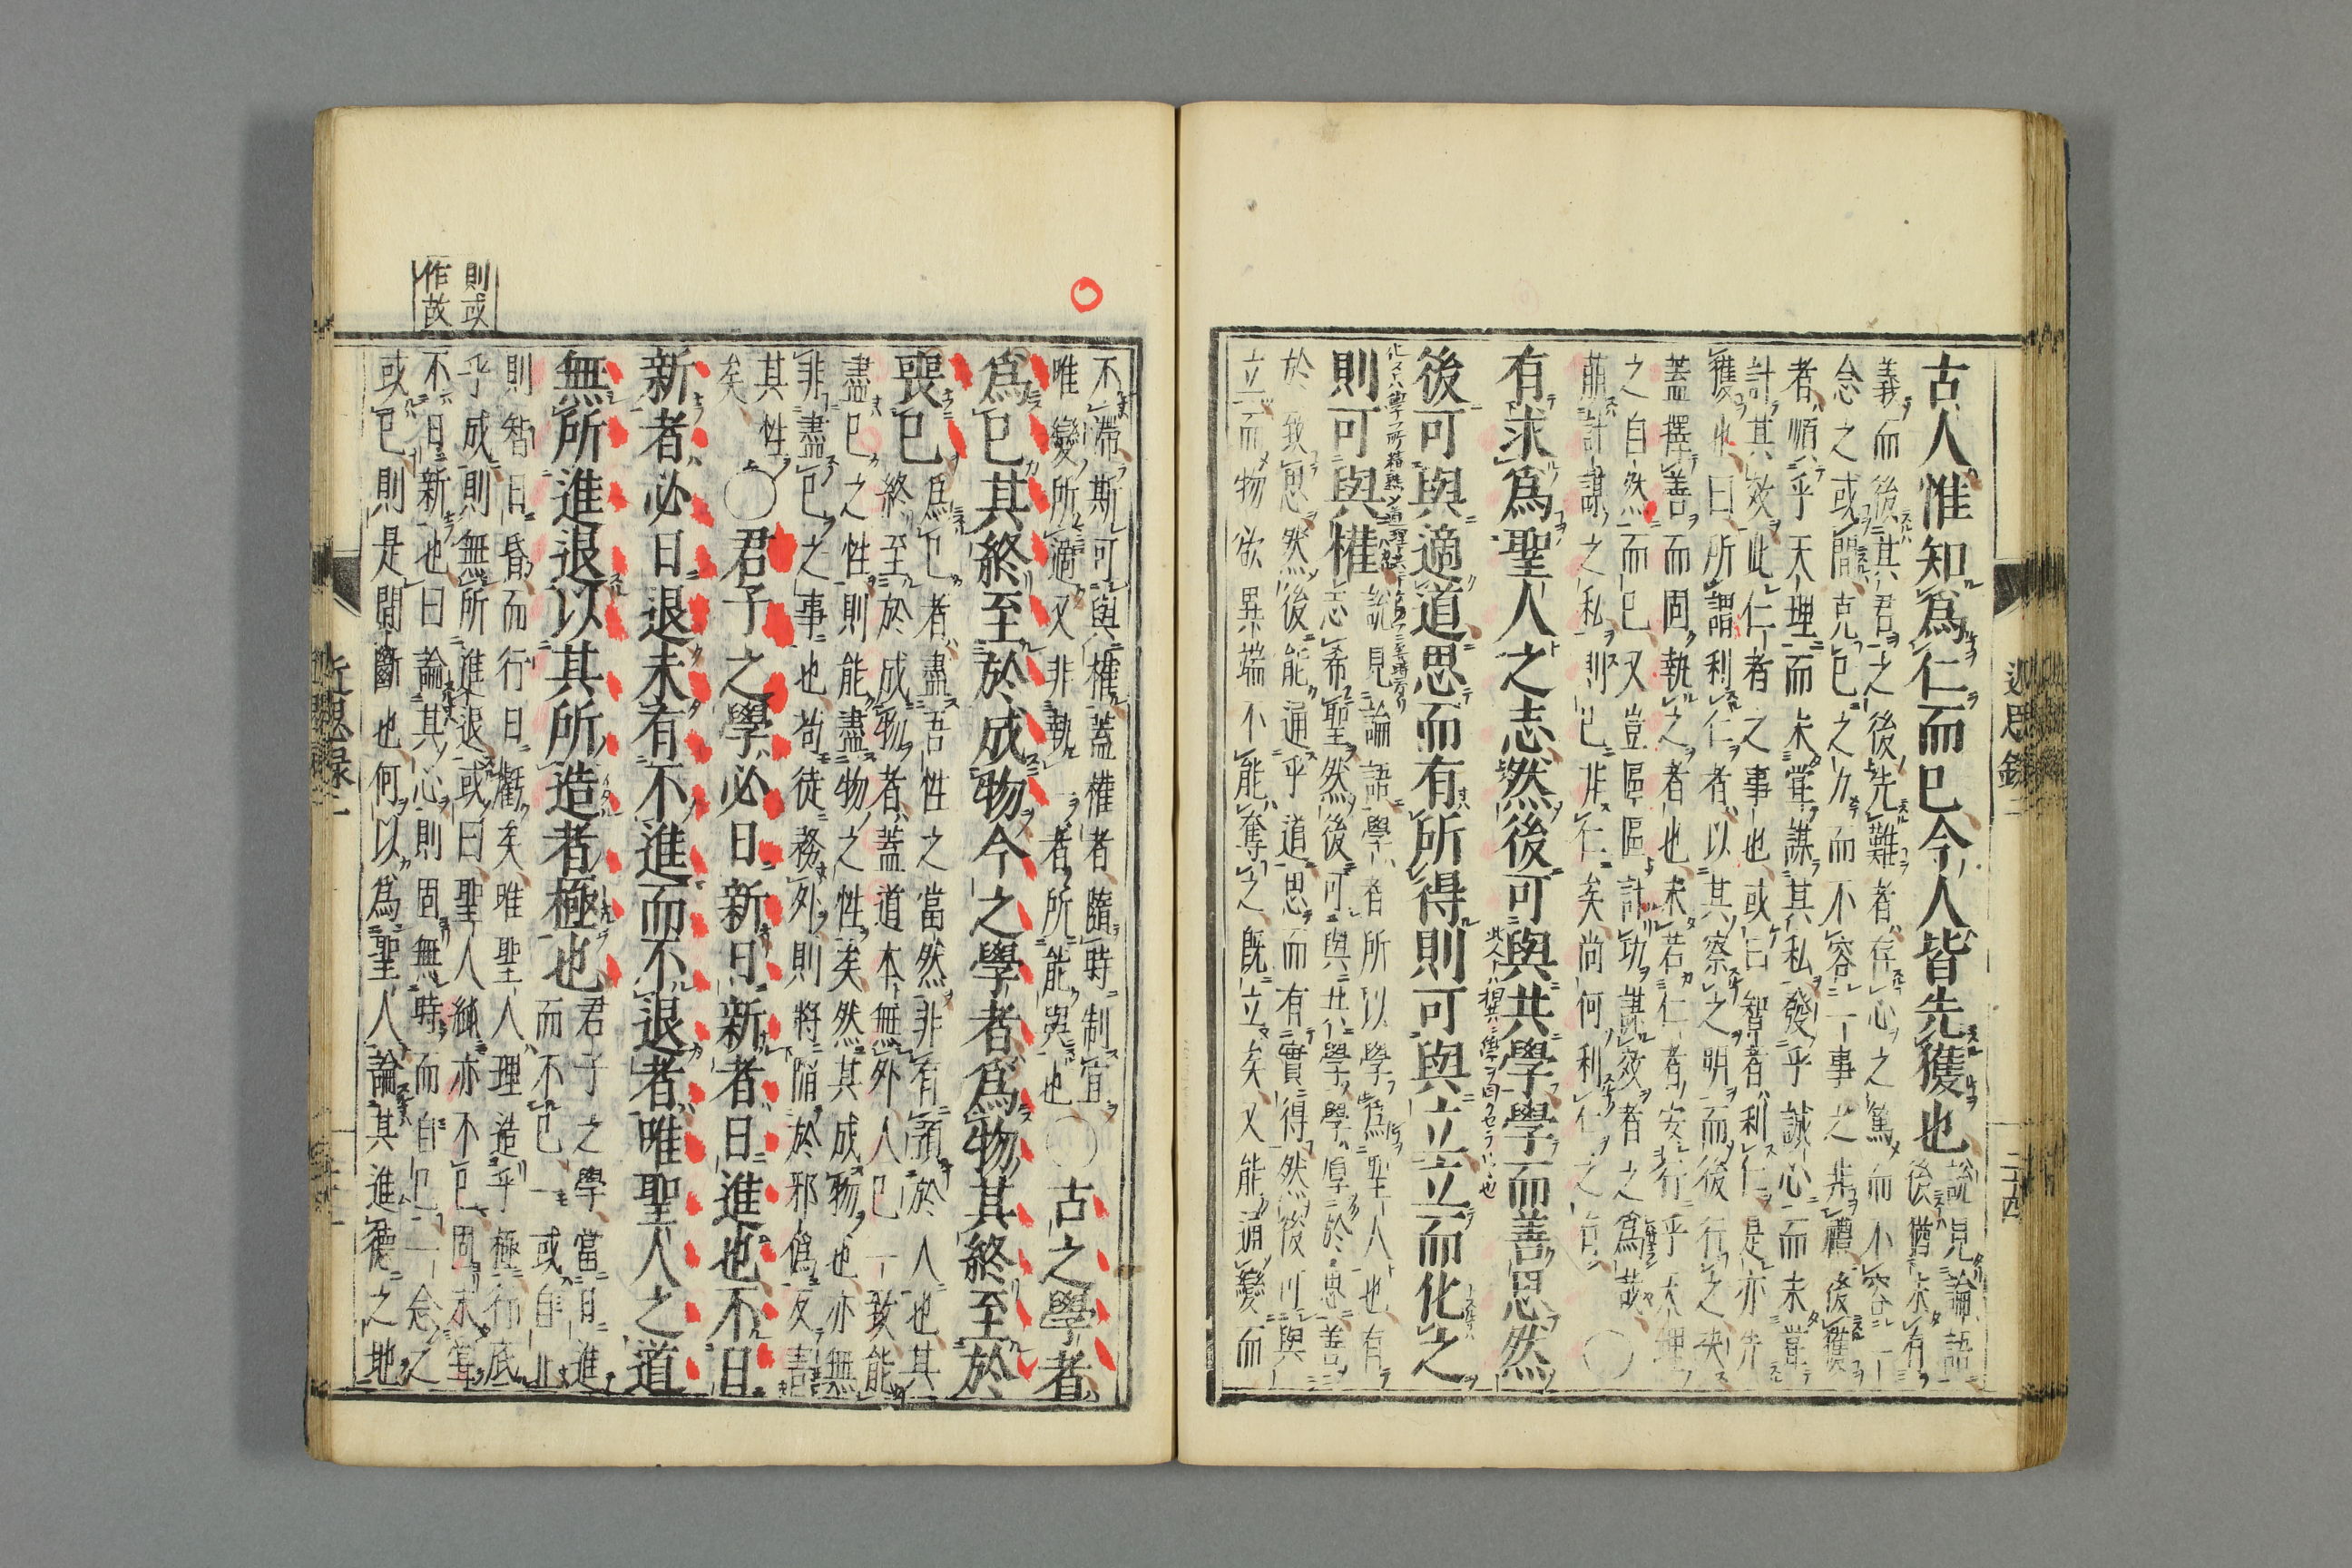 古人惟知爲仁而已今人皆先獲也 說見論語
後猶未有
義而後其君之後先難者存心之篤而不容一
念之或間克已之力而不容一事之非禮後獲
者順乎天理而未嘗謀其私發乎誠心而未嘗
計其效此仁者之事也或曰智者利仁是亦先
獲也曰所謂利仁者以其察之明而後行之決
蓋擇善而固執之者也未若仁者安行乎天理
之自然而已又豈區區計功謀效者之爲哉
萠計謀之私則已非仁矣尚何利仁之有 ○
有求爲聖人之志然後可與共學學而善思然
後可與適道思而有所得則可與立立而化之
則可與權 說見論語學者所以學爲聖人也有
志希聖然後可與共學學原於思善
於致思然後能通乎道思而有實得然後可與
立立而物欲異端不能奪之既立矣又能通變而
近思錄二
二十四
不滯斯可與權蓋權者隨時制宜
唯變所適又非執一者所能與也 ○古之學者
爲已其終至於成物今之學者爲物其終至於
喪已 爲已者盡吾性之當然非有預於人也其
終至於成物者蓋道本無外人已一致能
盡已之性則能盡物之性矣然其成物也亦無
非盡已之事也苟徒務外則將陷於邪僞反害
其性
矣 ○君子之學必日新日新者日進也不日
新者必日退未有不進而不退者唯聖人之道
無所進退以其所造者極也 君子之學當日進
而不已一或自止
則智日昏而行日虧矣唯聖人理造乎極行底
乎成則無所進退或曰聖人純亦不已固未嘗
不日新也曰論其心則固無時而自已一念之
或已則是間斷也何以爲聖人論其進德之地
則或
作故
近思錄二